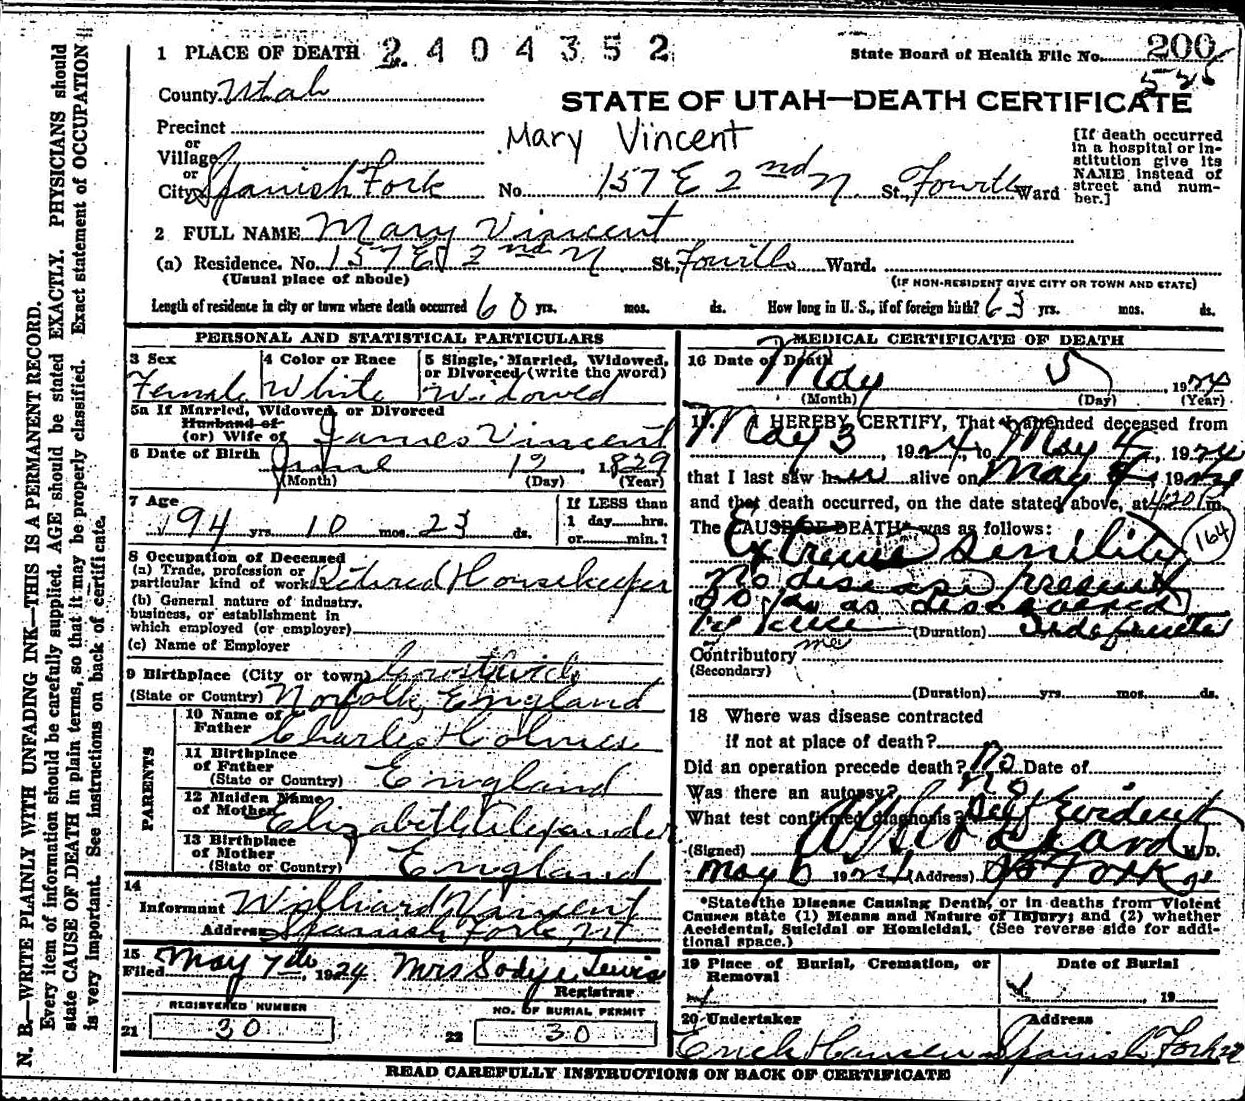 1 PLACE OF DEATH 2404352
State Board of Health File No. 200
525
County Utah
STATE OF UTAH—DEATH CERTIFICATE
Precinct
or
Village
or
City Spanish Fork
Mary Vincent
No. 157 E 2nd N St., Fourth Ward
[If death occurred
in a hospital or in-
stitution give its
NAME instead of
street and num-
ber.]
2 FULL NAME Mary Vincent
(a) Residence. No. 157 E 2nd N St., Fourth Ward.
(Usual place of abode)
(IF NON-RESIDENT GIVE CITY OR TOWN AND STATE)
Length of residence in city or town where death occurred 60 yrs. mos. ds. How long in U. S., if of foreign birth? 63 yrs. mos. ds.
PERSONAL AND STATISTICAL PARTICULARS
3 Sex
Female
4 Color or Race
White
5 Single, Married, Widowed,
or Divorced (write the word)
Widowed
5a If Married, Widowed, or Divorced
Husband of
(or) Wife of James Vincent
6 Date of Birth June 12, 1829
(Month) (Day) (Year)
7 Age
94 yrs. 10 mos. 23 ds.
If LESS than
1 day......hrs.
or......min.?
8 Occupation of Deceased
(a) Trade, profession or
particular kind of work Retired Housekeeper
(b) General nature of industry,
business, or establishment in
which employed (or employer)
(c) Name of Employer
9 Birthplace (City or town)
(State or Country) Norfolk, England
PARENTS
10 Name of
Father Charles Holmes
11 Birthplace
of Father
(State or Country) England
12 Maiden Name
of Mother Elizabeth Alexander
13 Birthplace
of Mother
(State or Country) England
14
Informant Williard Vincent
Address Spanish Fork, Ut
15
Filed May 7th, 1924 Mrs Lewis
Registrar
REGISTERED NUMBER
21 30
NO. OF BURIAL PERMIT
22 30
MEDICAL CERTIFICATE OF DEATH
16 Date of Death
May 5, 1924
(Month) (Day) (Year)
17. I HEREBY CERTIFY, That I attended deceased from
May 3 1924, to May 4, 1924
that I last saw her alive on May 4, 1924
and that death occurred, on the date stated above, at 4:20 P. m.
The CAUSE OF DEATH* was as follows:
164
Extreme senility
No disease present
so far as discovered
(Duration) Indefinite
Contributory
(Secondary)
(Duration) yrs. mos. ds.
18 Where was disease contracted
if not at place of death?
Did an operation precede death? No Date of
Was there an autopsy? No
What test confirmed diagnosis? Self Evident
(Signed) M. D.
May 6 1924 (Address) Sp Fork
*State the Disease Causing Death, or in deaths from Violent
Causes state (1) Means and Nature of Injury; and (2) whether
Accidental, Suicidal or Homicidal. (See reverse side for addi-
tional space.)
19 Place of Burial, Cremation, or
Removal
Date of Burial
19
20 Undertaker
Erick Hansen
Address
Spanish Fork
READ CAREFULLY INSTRUCTIONS ON BACK OF CERTIFICATE
N. B.—WRITE PLAINLY WITH UNFADING INK—THIS IS A PERMANENT RECORD.
Every item of information should be carefully supplied. AGE should be stated EXACTLY. PHYSICIANS should
state CAUSE OF DEATH in plain terms, so that it may be properly classified. Exact statement of OCCUPATION
is very important. See instructions on back of certificate.